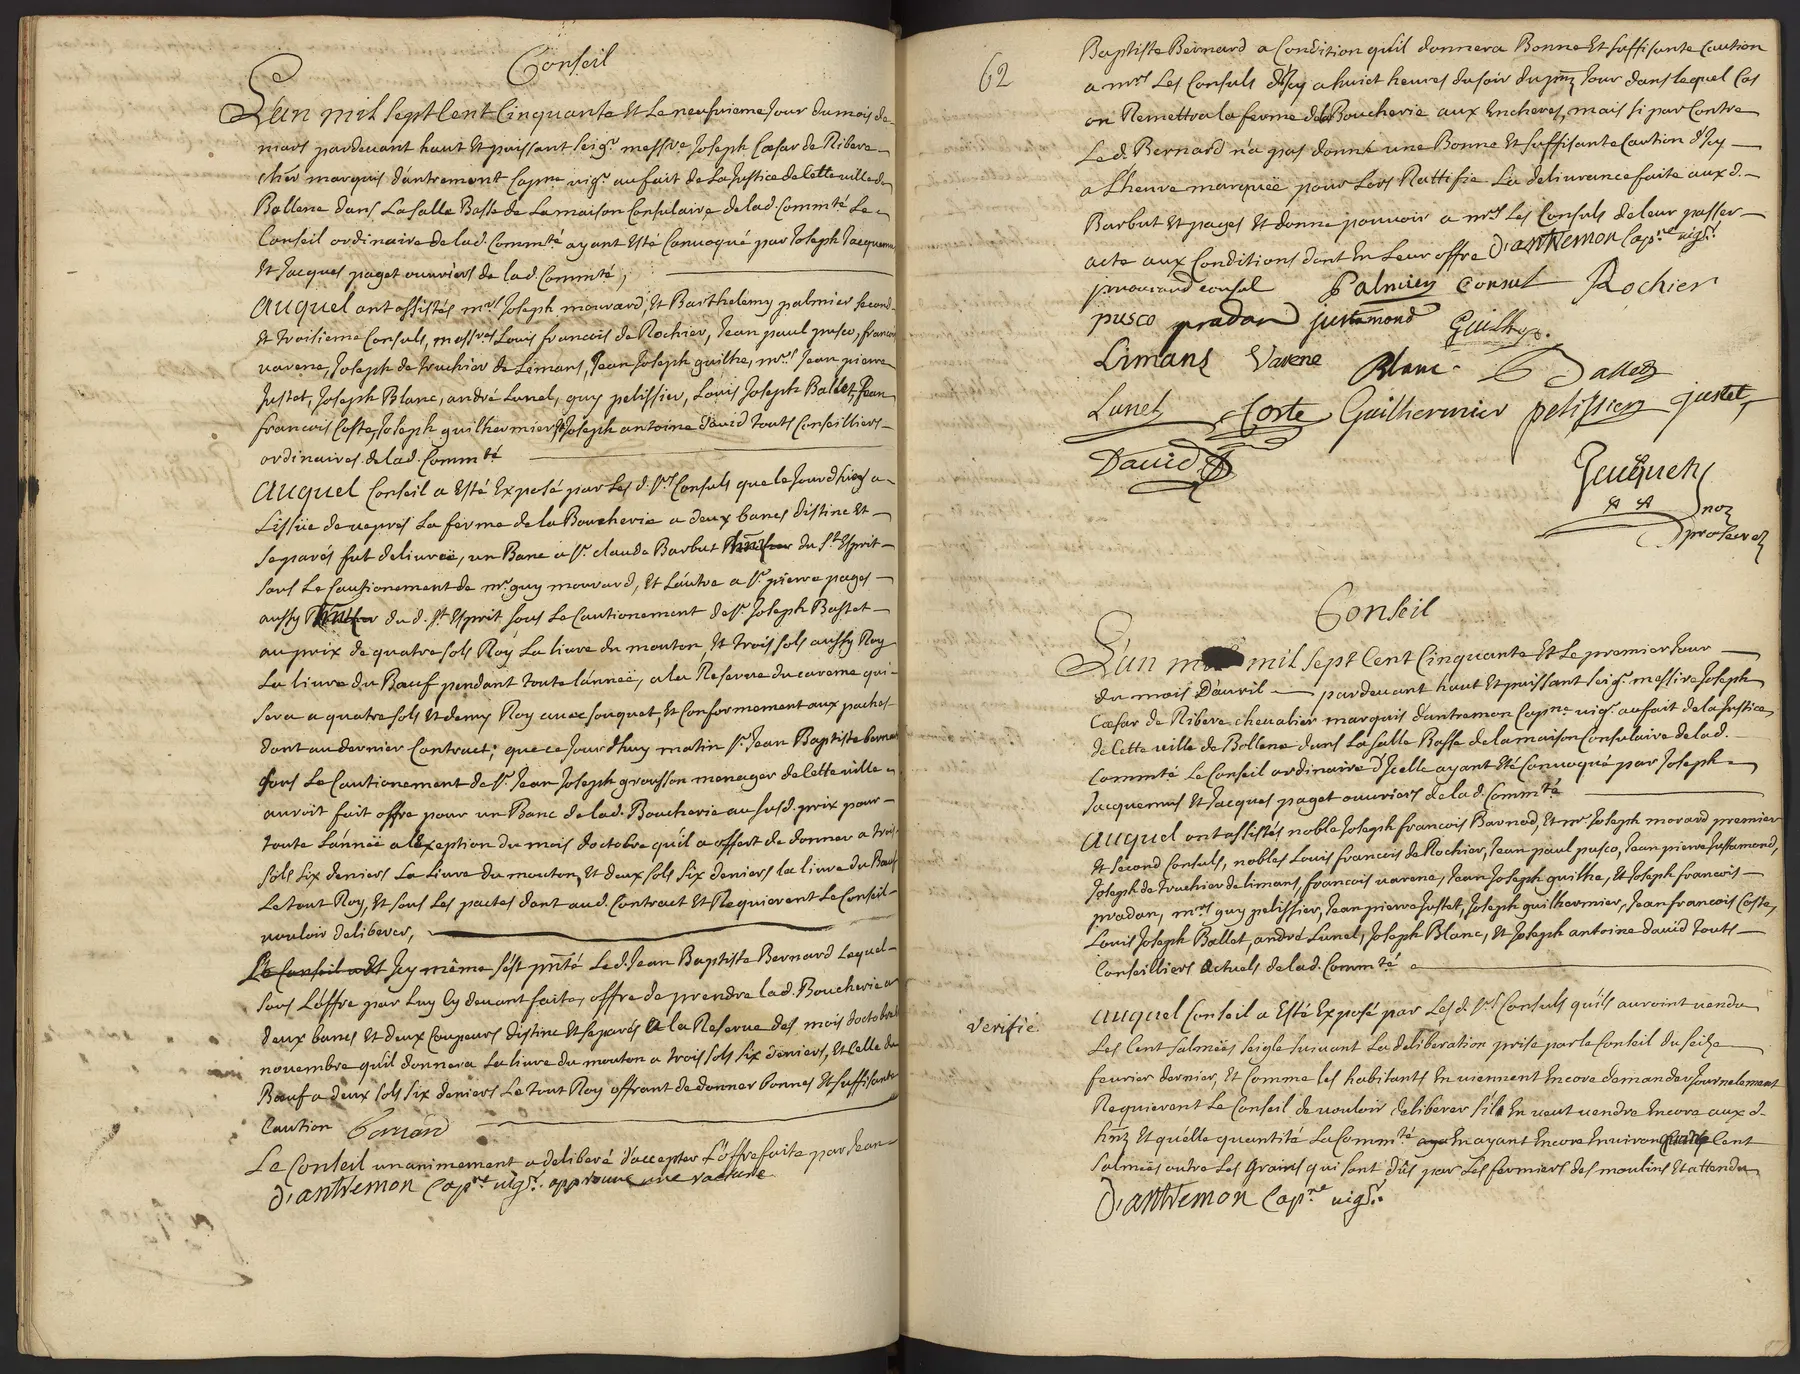 Conseil
L'an mil sept Cent Cinquante Et le neufvieme Jour du mois de
mars pardevant haut Et puissant seigr. messre. Joseph Cæsar de Ribere
cher marquis d'antremont Capne. vigr. au fait de La Justice de Cette ville de
Bollene dans La salle Basse de La maison Consulaire de lad. Commté Le
Conseil ordinaire de lad. Commté ayant Esté Convoqué par Joseph Jacquemus
Et Jacques paget ouvriers de lad. Commté,
Auquel ont assistés mrs. Joseph mourard, Et Barthelemy palmier second
Et troisieme Consuls, messres Louis francois de Rochier, Jean paul pusco, francois
varene, Joseph de Truchier de Limans, Jean Joseph guilhe, mrs. Jean pierre
Justet, Joseph Blanc, andré Lunel, guy pelissier, Louis Joseph Ballet, Jean
francois Coste, Joseph guilhermier Et Joseph antoine david touts Conseilliers
ordinaires de lad. Commté
Auquel Conseil a Esté Exposé par Les d. srs. Consuls que le Jour d'hier a
L'issüe de vepres La ferme de la Boucherie a deux bancs distinc Et
separés fut delivreë, un Banc a sr. claude Barbut du st. Esprit
sous Le Cautionement de mr. guy mourard, Et L'autre a sr. pierre pages
aussy du d. st. Esprit sous Le Cautionement de sr. Joseph Bastet
au prix de quatre sols Roy La livre du mouton, Et trois sols aussy Roy
La livre du Bœuf pendant toute l'anneë, a la Reserve du careme qui
sera a quatre sols Et demy Roy avec souquet, Et Conformement aux paches
dont au dernier Contract; que ce Jourd'huy matin sr. Jean Baptiste bernard
sous Le Cautionement de sr. Jean Joseph grousson menager de Cette ville
auroit fait offre pour un Banc de lad. Boucherie au susd. prix pour
toute L'anneë a l'Exeption du mois d'octobre qu'il a offert de donner a trois
sols six deniers La Livre du mouton, Et deux sols six deniers la livre du Bœuf
Le tout Roy, Et sous Les pactes dont aud. Contract Et Requierent Le Conseil
vouloir deliberer,
Le Conseil a Et Icy même s'est pnté Led. Jean Baptiste Bernard Lequel
sous L'offre par Luy Cy devant faite, offre de prendre lad. Boucherie a
deux bancs Et deux Coupeurs distinc Et separés a la Reserve des mois d'octobre
novembre qu'il donnera La livre du mouton a trois sols six deniers, Et Celle du
Bœuf a deux sols six deniers Le tout Roy offrant de donner bonnes Et suffisante
Caution
Le Conseil unanimement a deliberé d'accepter L'offre faite par Jean
D'antremon Capne. vigr. approuve une rature
62
Baptiste Bernard a Condition qu'il donnera Bonne Et suffisante Caution
a mrs Les Consuls d'Icy a huict heures du soir du pnt Jour dans lequel Cas
on Remettra la ferme de la Boucherie aux Encheres, mais si par Contre
Le d. Bernard n'a pas donné une Bonne Et suffisante Caution d'Icy
a L'heure marqueë pour Lors Rattifie La delivrance faite aux d.
Barbut Et pages Et donne pouvoir a mrs Les Consuls de leur passer
acte aux Conditions dont En Leur offre D'antremon Capne. vigr.
mourard consul Palmier Consul Rochier
pusco pradan justamond Guilhe.
Limans Varene Blanc Ballet
Lunel Coste Guilhermier pelissier justet
David
notre
prosecre
Conseil
L'an mil sept Cent Cinquante Et Le premier Jour
du mois D'avril pardevant haut Et puissant seigr. messire Joseph
Cæsar de Ribere chevalier marquis d'antremon Capne. vigr. au fait de la Justice
de Cette ville de Bollene dans La salle Basse de la maison Consulaire de lad.
Commté Le Conseil ordinaire d'Icelle ayant Eté Convoqué par Joseph
Jacquemus Et Jacques paget ouvriers de lad. Commté
Auquel ont assistés noble Joseph francois Barnod, Et mr. Joseph morard premier
Et second Consuls, nobles Louis francois de Rochier, Jean paul pusco, Jean pierre Justamond,
Joseph de Truchier de limans, francois varene, Jean Joseph guilhe, Et Joseph francois
pradan, mrs guy pelissier, Jean pierre Justet, Joseph guilhermier, Jean francois Coste,
Louis Joseph Ballet, andré Lunel, Joseph Blanc, Et Joseph antoine david touts
Conseilliers actuels de lad. Commté
verifié
Auquel Conseil a Esté Exposé par Les d. srs. Consuls qu'ils auroint vendu
Les Cent salmeës seigle suivant La deliberation prise par le Conseil du seize
fevrier dernier, Et Comme les habitants En viennent Encore demander Journelement
Requierent Le Conseil de vouloir deliberer s'il En veut vendre Encore aux d.
hnts Et qu'elle quantité La Commté En ayant Encore Environ Cent
salmeës outre Les Grains qui sont dûs par Les fermiers des moulins Et attendu
D'antremon Capne. vigr.